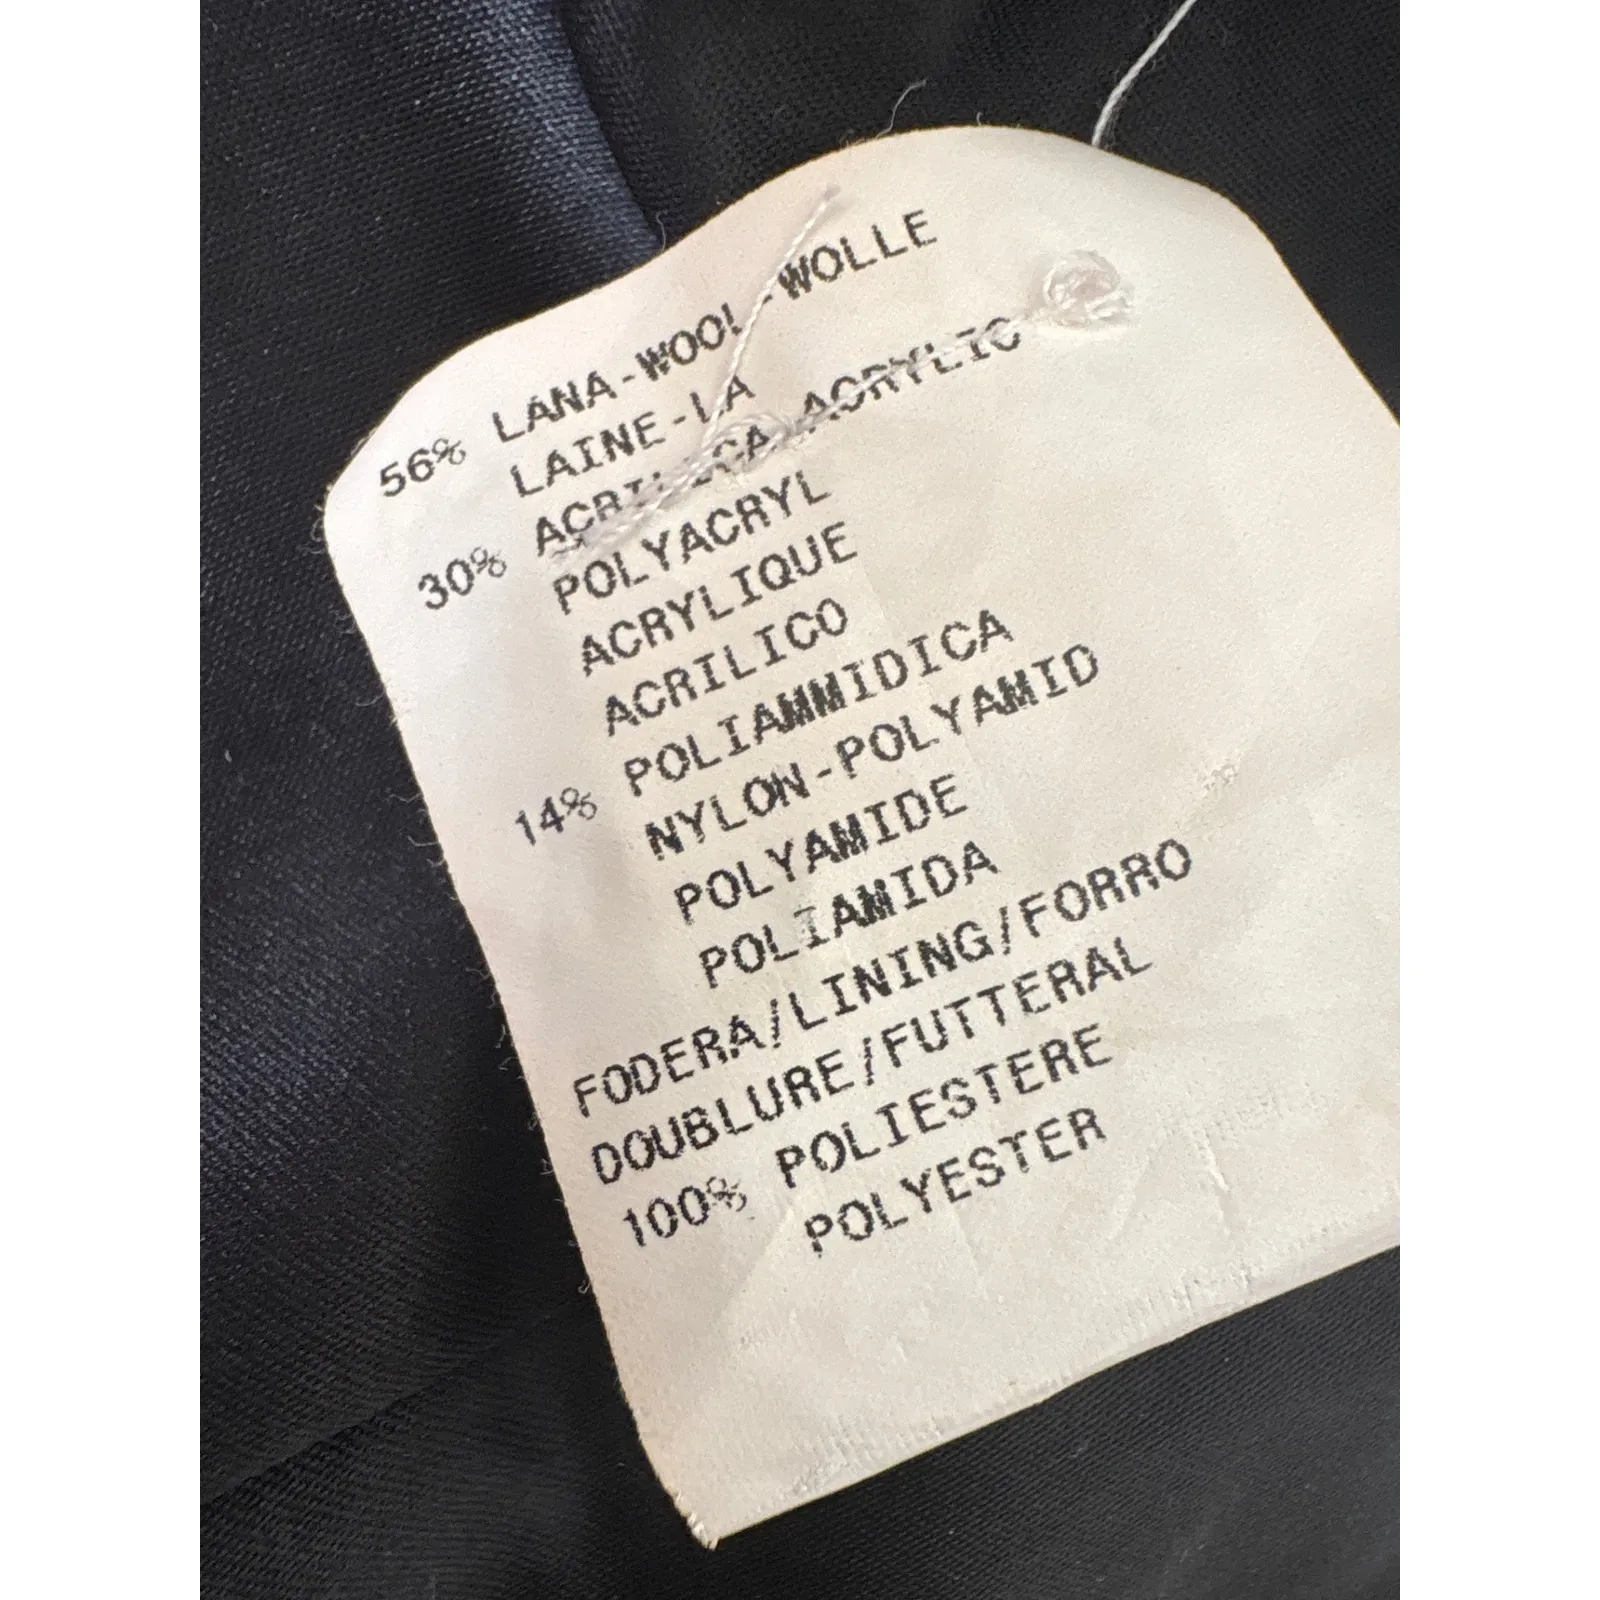 56% LANA-WOOL-WOLLE
LAINE-LA
30% ACRILICA-ACRYLIC
POLYACRYL
ACRYLIQUE
ACRILICO
14% POLIAMMIDICA
NYLON-POLYAMID
POLYAMIDE
POLIAMIDA
FODERA/LINING/FORRO
DOUBLURE/FUTTERAL
100% POLIESTERE
POLYESTER